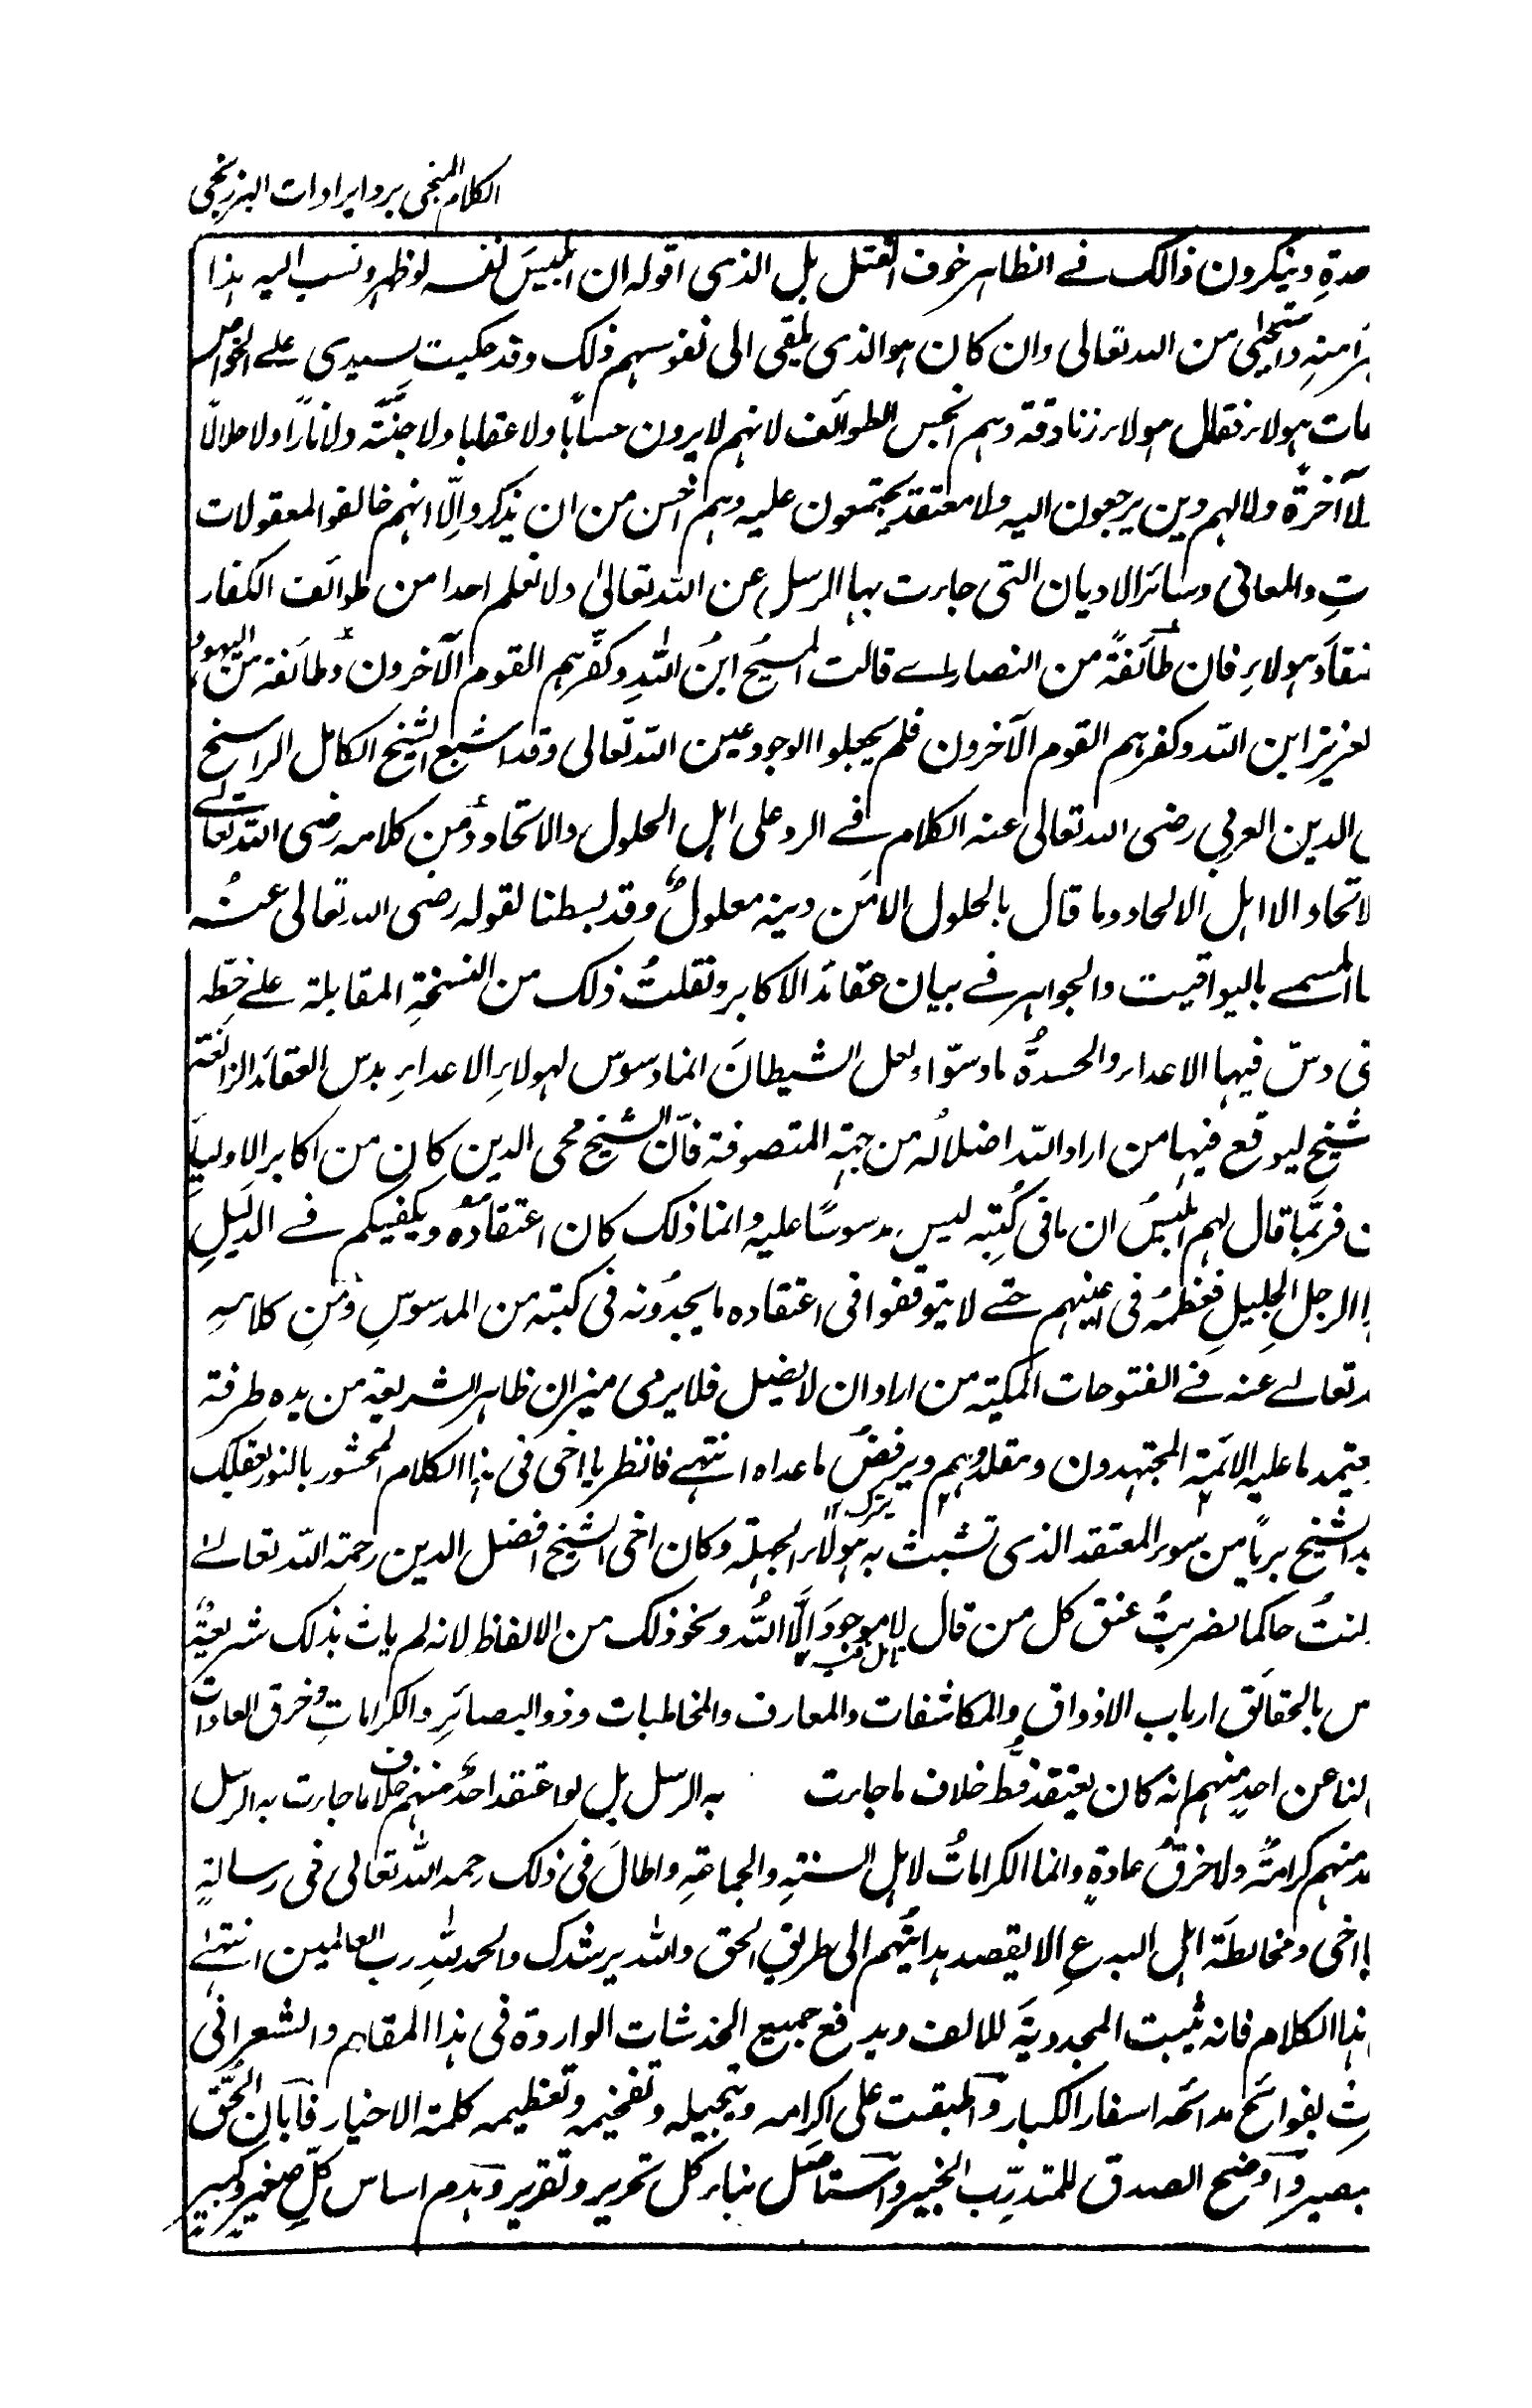 الكلام المنجي برد ايرادات البرزنجي
دة وينكرون ذالك في الظاهر خوف القتل بل الذي اقوله ان ابليسَ نفسه لو ظهر ونسب اليه هذا
منه واستحيى من الله تعالى وان كان هو الذي يلقي الى نفوسهم ذلك وقد حكيت لسيدي علے الخواص
مات هولاء فقال هولاء زنادقة وهم انجس الطوائف لانهم لا يرون حسابًا ولا عقابا ولا جنَّة ولا نارًا ولا حلالًا
لا آخرةً ولا لهم دين يرجعون اليه ولا معتقد يجتمعون عليه وهم اخس من ان يذكروا لِانهم خالفوا المعقولات
تِ والمعاني وسائر الاديان التي جاءت بها الرسل عن الله تعالىٰ ولا نعلم احدا من طوائف الكفار
عتقادَ هولاءِ فان طائفةً من النصارے قالت المسيحُ ابنُ اللهِ وكفَّرهم القوم الآخرون وطائفة من اليهود
لعزيز ابن الله وكفرهم القوم الآخرون فلم يجعلوا الوجود عين الله تعالى وقد اشبع الشيخ الكامل الراسخ
الدين العربي رضي الله تعالى عنه الكلام في الرد على اهل الحلول والاتحاد ومن كلامه رضي الله تعالے
لاتحاد الا اهل الالحاد وما قال بالحلول الا من دينه معلولٌ وقد بسطنا لقوله رضي الله تعالى عنهُ
المسمے باليواقيت والجواهر في بيان عقائد الاكابر ونقلتُ ذلك من النسخةِ المقابلة علے خطه
تي دسّ فيها الاعداء والحسدةُ ما دسّوا ولعل الشيطانَ انما وسوس لهولاءِ الاعداءِ بدس العقائد الزائغة
شيخ ليوقع فيها من اراد الله اضلاله من جهة المتصوفة فان الشيخ محي الدين كان من اكابر الاولياءِ
ن فربَّما قال لهم ابليسُ ان ما في كُتبِه ليس مدسوسًا عليه وانما ذلك كان اعتقادُه ويكفيكم في الدليلِ
الرجلِ الجليلِ فعظمُه في اعينهم حتے لا يتوقفوا في اعتقاده ما يجدُونه في كتبه من المدسوسِ ومن كلامهِ
تعالے عنه في الفتوحات المكية من اراد ان لا يضل فلا يرمي ميزان ظاهر الشريعة من يده طرفة
يعتمد ما عليه الائمة المجتهدون ومقلدوهم ويرفضُ ما عداه انتهے فانظر يا اخي في هذا الكلام المحشور بالنور بعقلك
يترك ١٢
الشيخ بريًا من سوء المعتقد الذي تشبث به هولاء الجهلة وكان اخي الشيخ افضل الدين رحمه الله تعالےٰ
كنتُ حاكما لضربتُ عنق كل من قال لا موجودَ الّا اللهُ ونحو ذلك من الالفاظ لانه لم يات بذلك شريعةٌ
س بالحقائق ارباب الاذواق والمكاشفات والمعارف والمخاطبات وذو البصائرِ والكراماتِ وخرق العادات
لنا عن احدٍ منهم انه كان يعتقد قط خلاف ما جاءت به الرسل بل لو اعتقد احدٌ منهم خلاف ما جاءت به الرسل
منهم كرامةٌ ولا خرقُ عادةٍ وانما الكراماتُ لاهل السنةِ والجماعةِ واطالَ في ذلك رحمه الله تعالى في رسالةٍ
يا اخي ومخالطةَ اهل البدعِ الا بقصد هدايتهم الى طريق الحق والله يرشدك والحمد للهِ رب العالمين انتهےٰ
هذا الكلام فانه يثبت المجدويةَ للالف ويدفع جميع الخدشات الواردة في هذا المقام والشعراني
بفوائح مدائحه اسفار الكبار واطبقت على اكرامه وتبجيله وتفخيمه وتعظيمه كلمة الاخيار فابان الحق
بصير واوضح الصدق للمتدرِّب الخبير واستأصل بناء كل تحرير وتقرير وهدم اساس كلِّ صغيرٍ وكبيرٍ